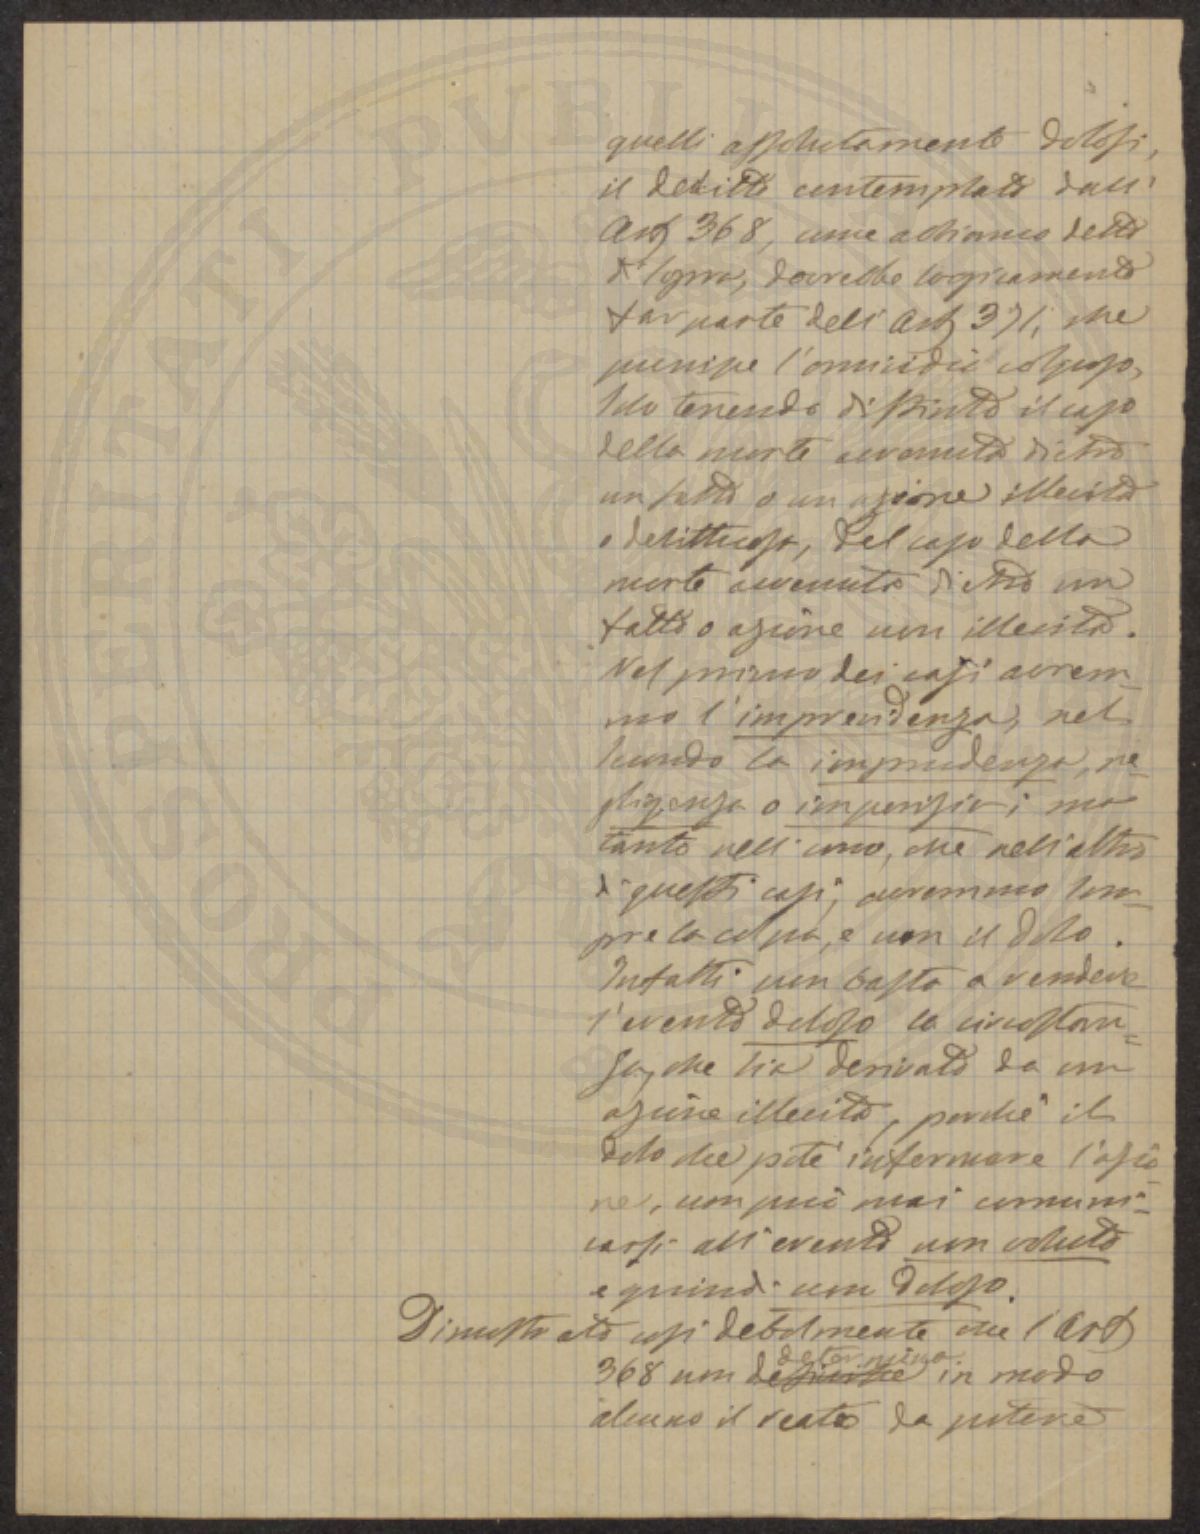 quelli assolutamente dolosi,
il delitto contemplato dall'
Art 368, come abbiamo detto
di sopra, dovrebbe logicamente
far parte dell'Art 371, che
punisce l'omicidio colposo,
solo tenendo distinto il caso
della morte avvenuta dietro
un fatto o un azione illecita
o delittuosa, del caso della
morte avvenuta dietro un
fatto o azione non illecita.
Nel primo dei casi avrem-
mo l'imprevidenza, nel
secondo la imprudenza, ne-
gligenza o imperizia; ma
tanto nell'uno, che nell'altro
di questi casi, avremmo sem-
pre la colpa, e non il dolo.
Infatti non basta a rendere
l'evento doloso la circostan=
za, che sia derivato da un
azione illecita, perchè il
dolo che potè informare l'azio-
ne, non può mai comuni=
carsi all'evento non voluto
e quindi non doloso.
Dimostrato così debolmente che l'Art
determina
368 non definisce in modo
alcuno il reato da potere
PROSPERITATI PUBLICAE